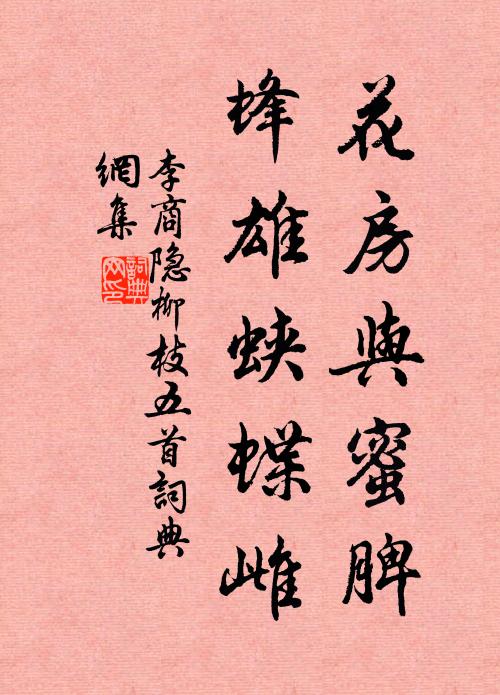 花房與蜜脾
蜂雄蛺蝶雌
李商隐柳枝五首詞典
網集
詞典網印